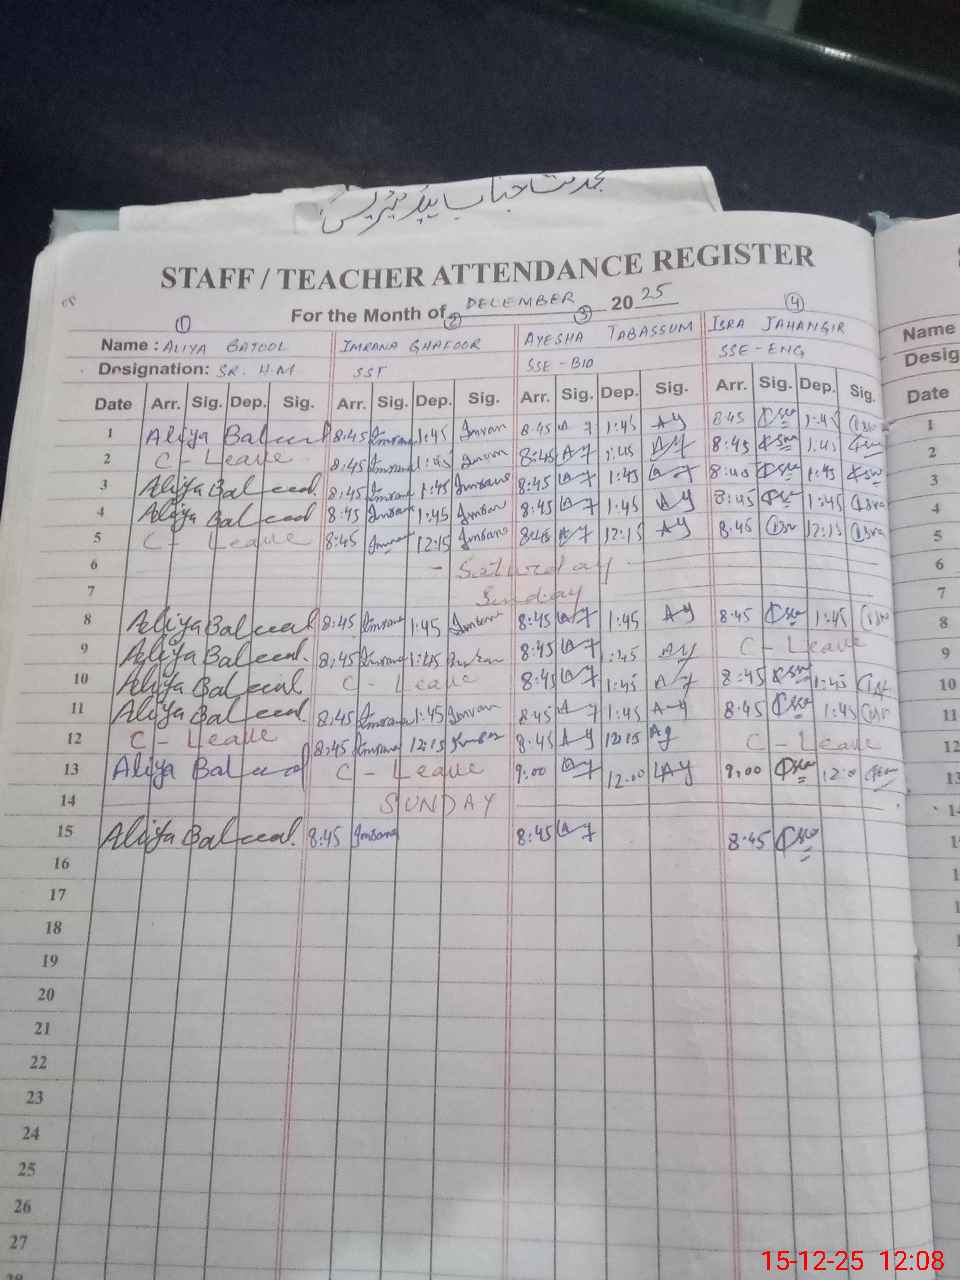 بخدمت جناب ہیڈ مسٹریس
STAFF / TEACHER ATTENDANCE REGISTER
For the Month of DECEMBER 2025
① ② ③ ④
Name : ALIYA BATOOL IMRANA GHAFOOR AYESHA TABASSUM ISRA JAHANGIR Name
Designation: SR. H.M SST SSE-BIO SSE-ENG Desig
Date Arr. Sig. Dep. Sig. Arr. Sig. Dep. Sig. Arr. Sig. Dep. Sig. Arr. Sig. Dep. Sig. Date
1 Aliya Batool 8:45 Imrana 1:45 Imran 8:45 1:45 AY 8:45 1:45 1
2 C - Leave 8:45 Imrana 1:45 Imran 8:45 1:45 AY 8:45 1:45 2
3 Aliya Batool 8:45 Imrana 1:45 Imrana 8:45 1:45 8:45 1:45 3
4 Aliya Batool 8:45 Imrana 1:45 Imran 8:45 1:45 AY 8:45 1:45 Isra 4
5 C - Leave 8:45 12:15 Imrana 8:45 12:15 AY 8:45 Isr 12:15 Isra 5
6 - Saturday - 6
7 Sunday 7
8 Aliya Batool 8:45 Imrana 1:45 Imrana 8:45 1:45 AY 8:45 1:45 8
9 Aliya Batool 8:45 Imrana 1:45 8:45 1:45 AY C - Leave 9
10 Aliya Batool C - Leave 8:45 1:45 8:45 1:45 10
11 Aliya Batool 8:45 Imrana 1:45 Imran 8:45 1:45 A-Y 8:45 1:45 11
12 C - Leave 8:45 Imrana 12:15 8:45 A-Y 12:15 Ay C - Leave 12
13 Aliya Batool C - Leave 9:00 12:00 AY 9:00 12:0 13
14 SUNDAY 14
15 Aliya Batool 8:45 Imrana 8:45 8:45
16
17
18
19
20
21
22
23
24
25
26
27
28
15-12-25 12:08